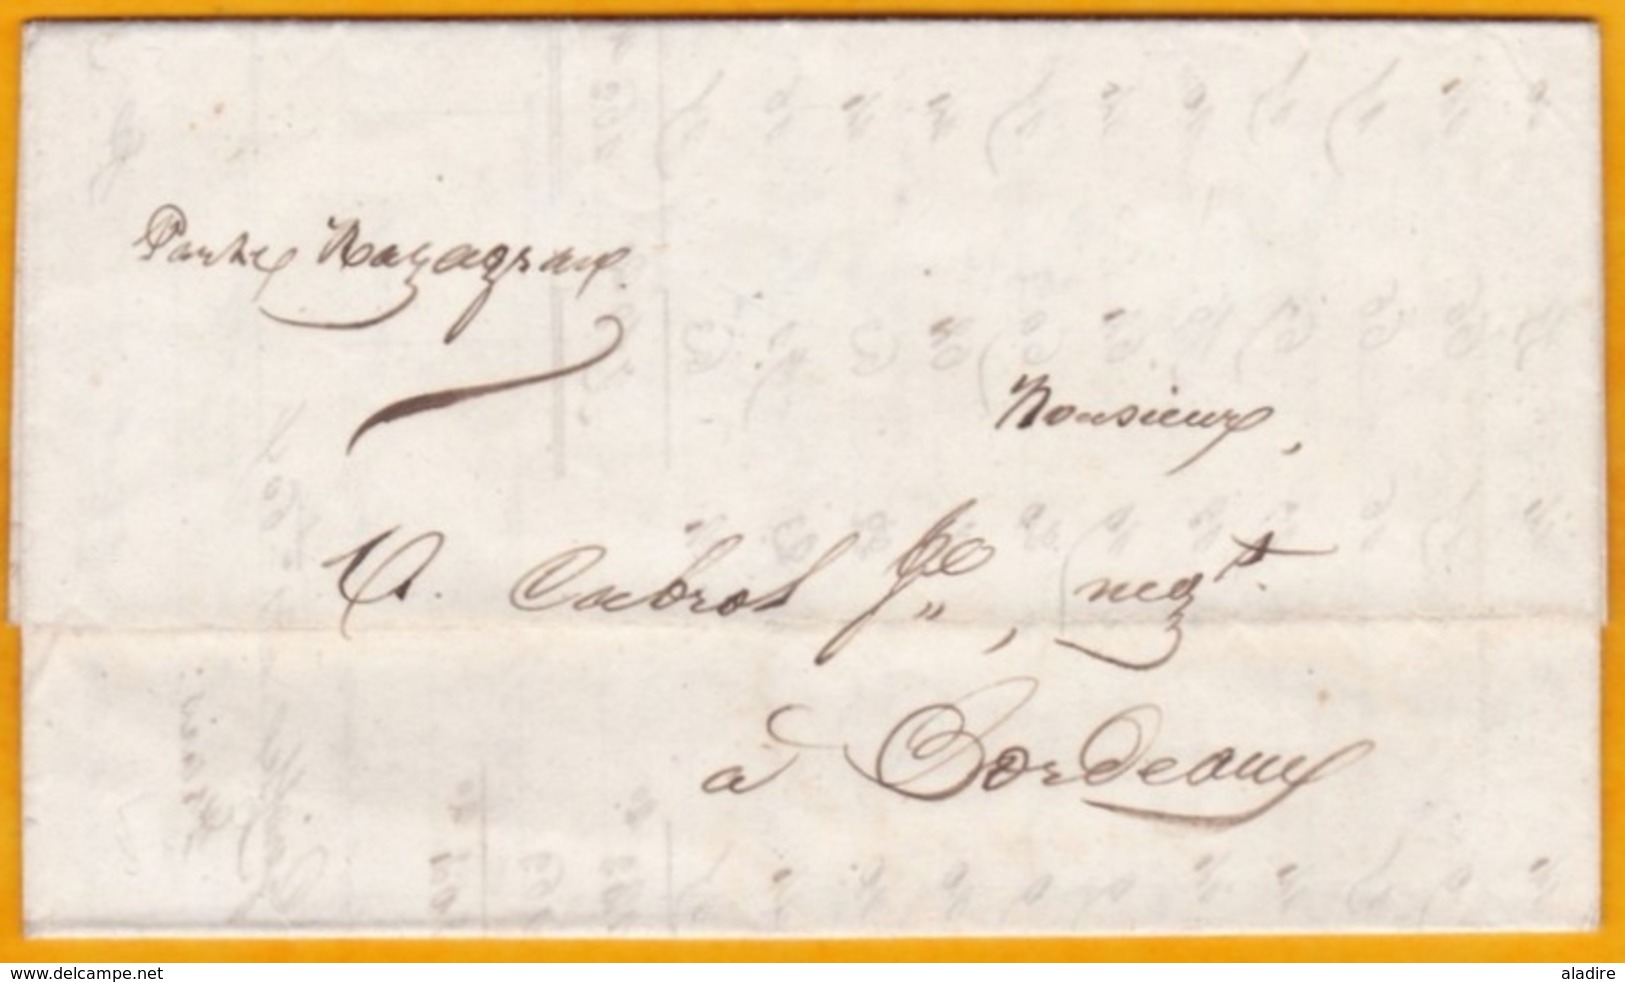 Par le Mazagran.
Monsieur,
A. Cabrol Jne, negt.
à Bordeaux
www.delcampe.net
aladire